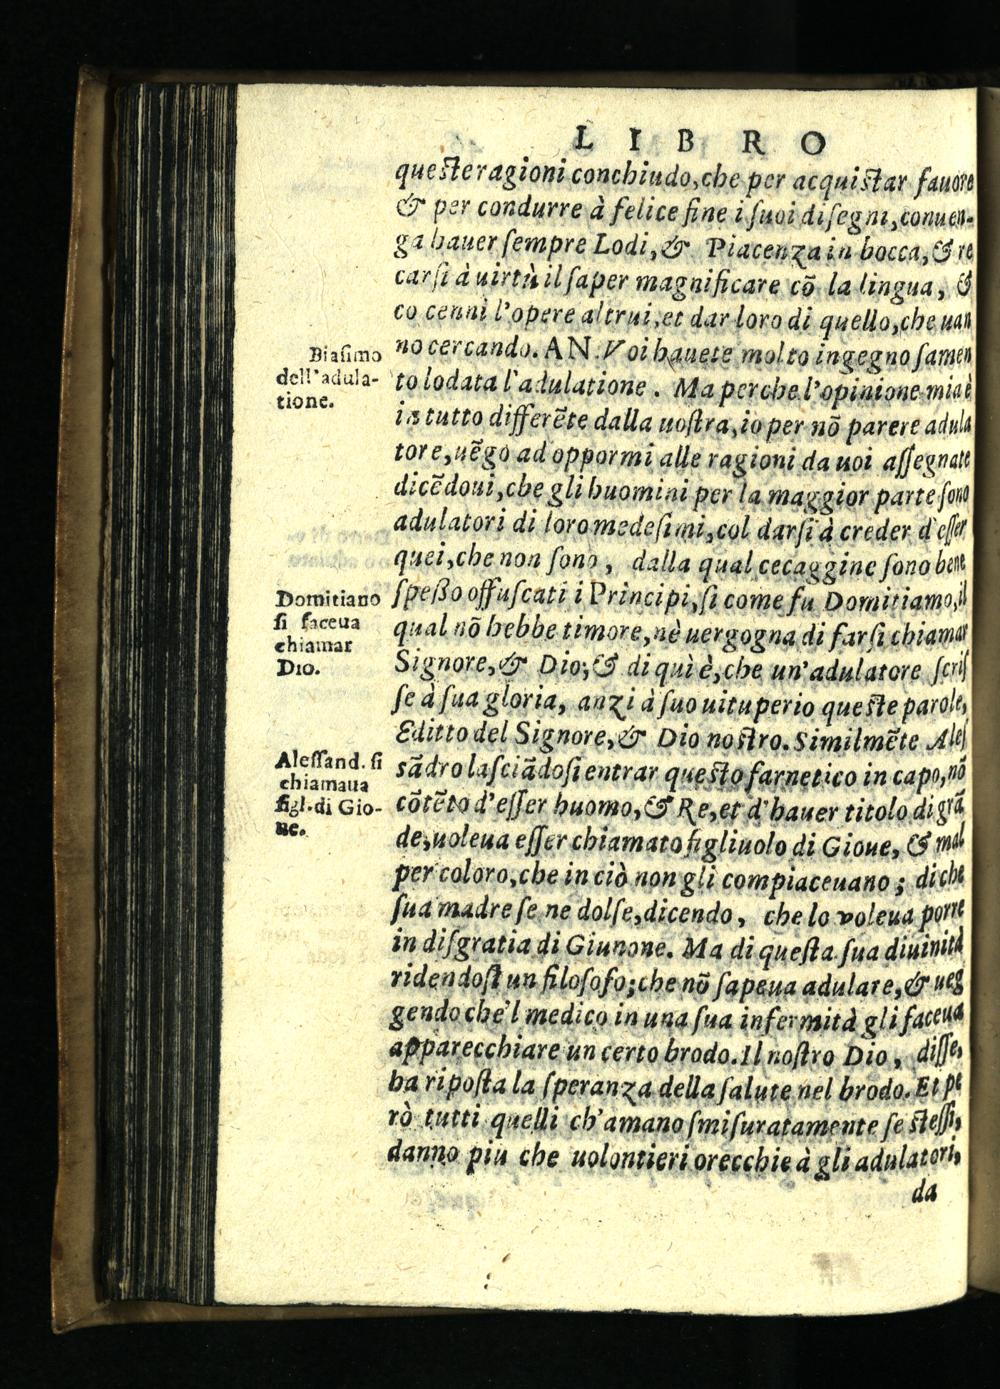 LIBRO
queste ragioni conchiudo, che per acquistar fauore
& per condurre à felice fine i suoi disegni, conuen-
ga hauer sempre Lodi, & Piacenza in bocca, & re
carsi à uirtù il saper magnificare cõ la lingua, &
co cenni l'opere altrui, et dar loro di quello, che uan
no cercando. AN. Voi hauete molto ingegnosamen
Biasimo
dell'adula-
tione.
to lodata l'adulatione. Ma perche l'opinione mia è
in tutto differẽte dalla uostra, io per nõ parere adula
tore, uẽgo ad oppormi alle ragioni da uoi assegnate
dicẽdoui, che gli huomini per la maggior parte sono
adulatori di loro medesimi, col darsi à creder d'esser
quei, che non sono, dalla qual cecaggine sono bene
spesso offuscati i Principi, si come fu Domitiamo, il
Domitiano
si faceua
chiamar
Dio.
qual nõ hebbe timore, nè uergogna di farsi chiamar
Signore, & Dio; & di quì è, che un'adulatore scris
se à sua gloria, anzi à suo uituperio queste parole,
Editto del Signore, & Dio nostro. Similmẽte Ales
sãdro lasciãdosi entrar questo farnetico in capo, nõ
Alessand. si
chiamaua
figl. di Gio-
ue.
cõtẽto d'esser huomo, & Re, et d'hauer titolo di grã
de, uoleua esser chiamato figliuolo di Gioue, & mal
per coloro, che in ciò non gli compiaceuano; di che
sua madre se ne dolse, dicendo, che lo voleua porre
in disgratia di Giunone. Ma di questa sua diuinità
ridendosi un filosofo; che nõ sapeua adulare, & ueg
gendo che'l medico in una sua infermità gli faceua
apparecchiare un certo brodo. Il nostro Dio, disse,
ha riposta la speranza della salute nel brodo. Et pe
rò tutti quelli ch'amano smisuratamente se stessi,
danno piu che uolontieri orecchie à gli adulatori,
da